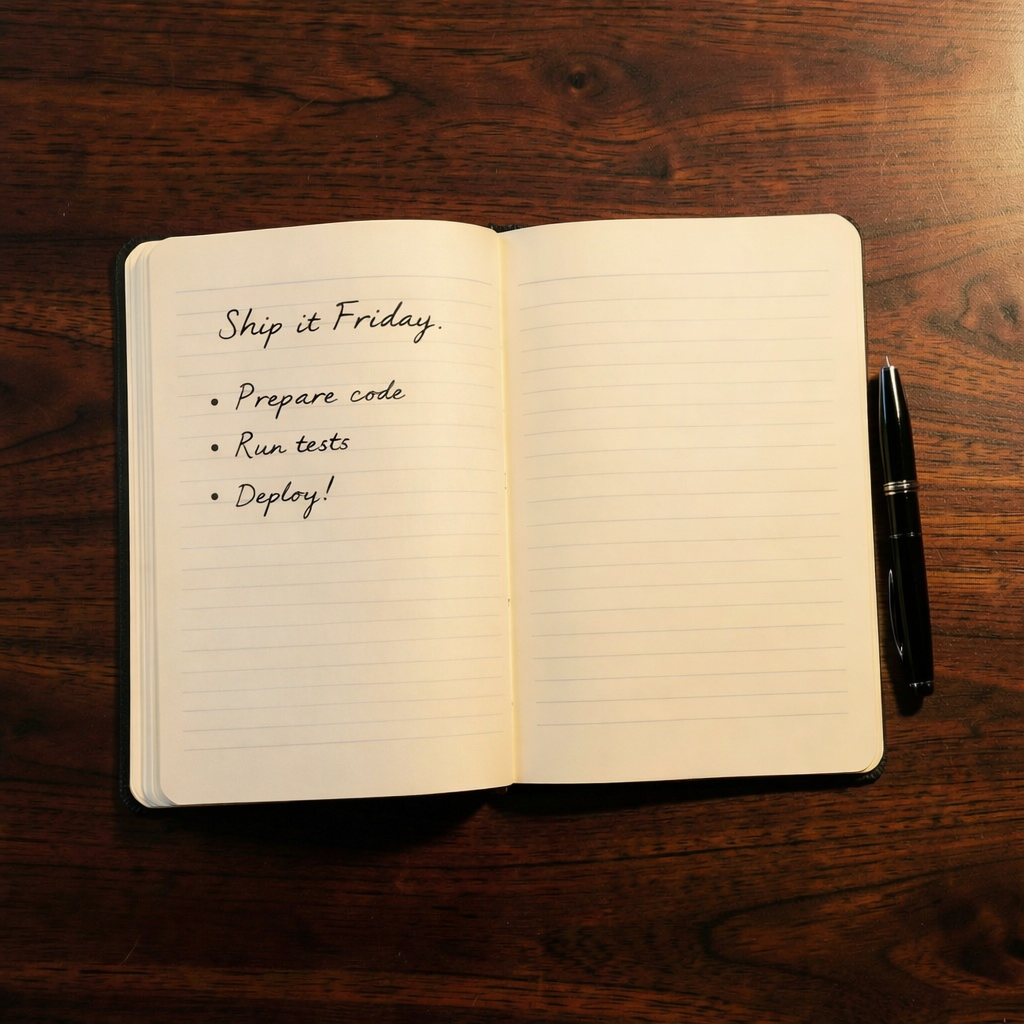 Ship it Friday.
• Prepare code
• Run tests
• Deploy!